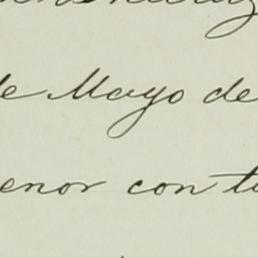 de Mayo de
enor con t